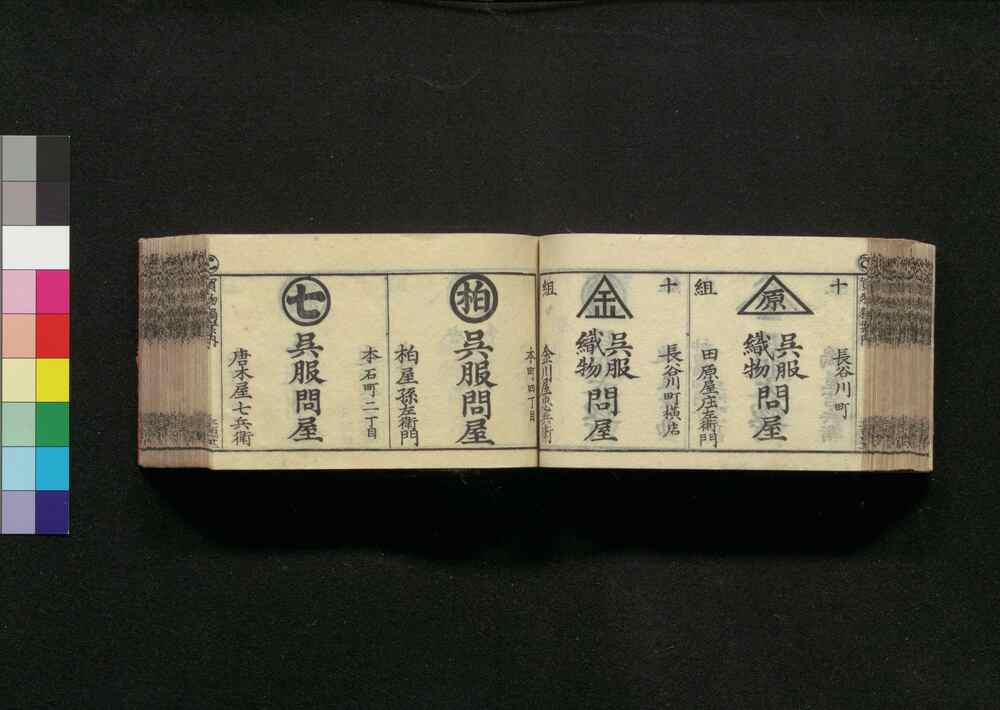 十
組
原
長谷川町
呉服
織物
問屋
田原屋庄左衛門
十
組
金
長谷川町横店
呉服
織物
問屋
金川屋忠兵衛
本町四丁目
柏
呉服問屋
柏屋孫左衛門
本石町二丁目
七
呉服問屋
唐木屋七兵衛